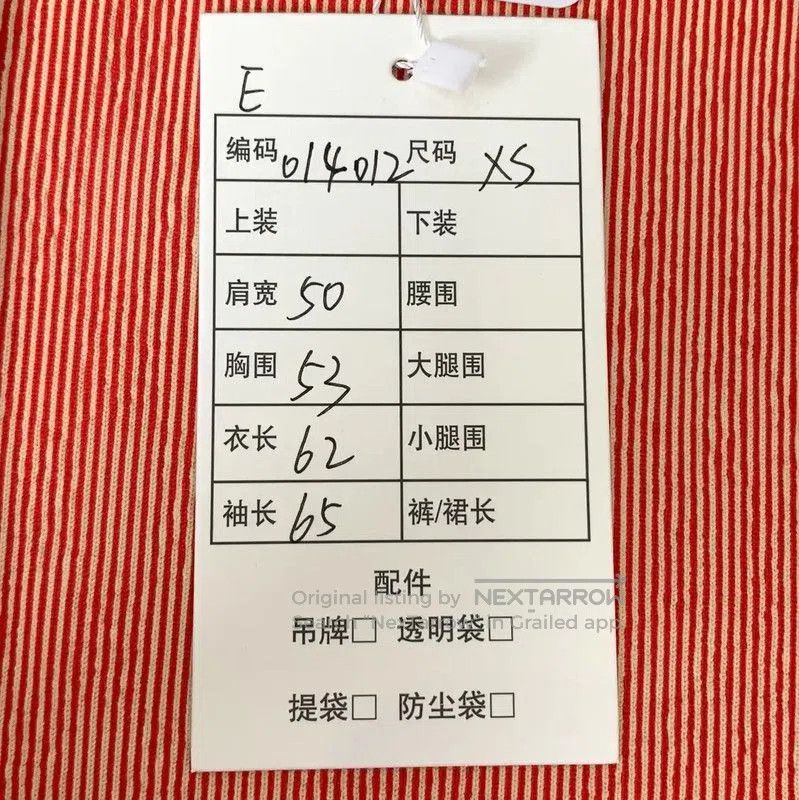 E
编码 014012 尺码 XS
上装 下装
肩宽 50 腰围
胸围 53 大腿围
衣长 62 小腿围
袖长 65 裤/裙长
配件
Original listing by NEXTARROW
Search "NextArrow" in Grailed app
吊牌□ 透明袋□
提袋□ 防尘袋□